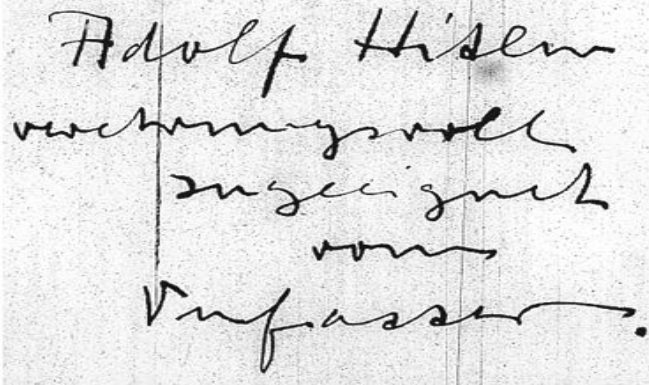 Adolf Hitlern
verehrungsvoll
zugeeignet
vom
Verfasser.